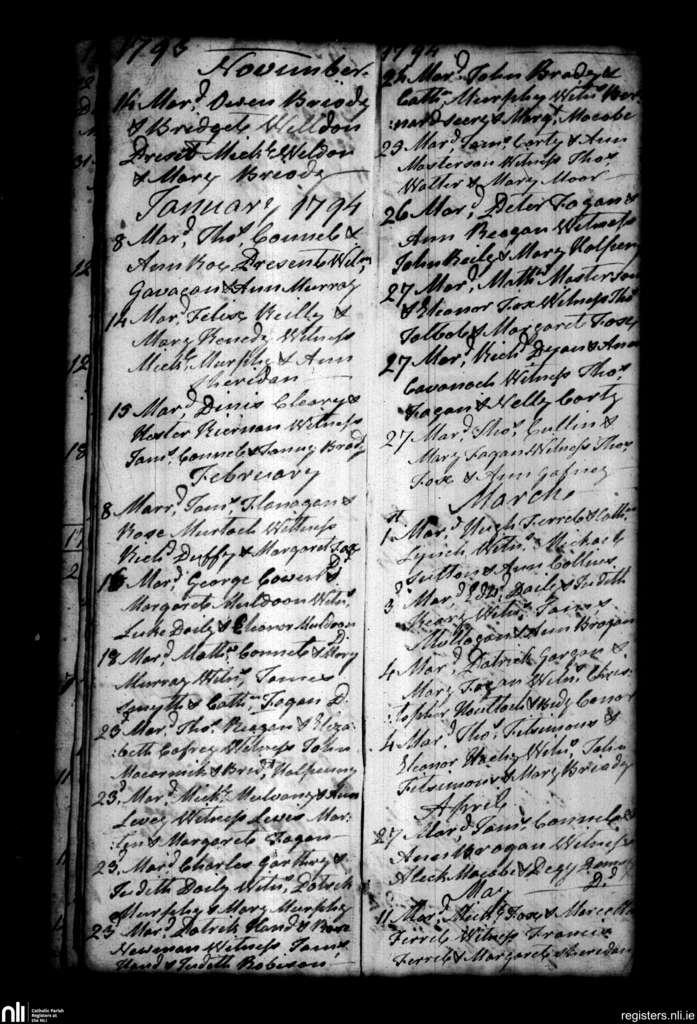 1793
November
14 Mar.d Owen Briody
& Bridget Welldon
Present Mich.l Weldon
& Mary Briody
January 1794
8 Mar.d Tho.s Connel &
Ann Roe Present Will.m
Gavagan & Ann Murray
14 Mar.d Felix Reilly &
Mary Kenedy Witness
Mich.l Murphy & Ann
Sheridan
15 Mar.d Dinis Cleary &
Hester Kiernan Witness
Jam.s Connel & Fanny Brady
February
8 Marr.d Jam.s Flanagan &
Rose Murtach Wittness
Rich.d Duffy & Margaret Fox
Mar.d George &
Margaret Muldoon Witn.s
Luke Daily & Eleanor Muldoon
18 Mar.d Math.w Connel & Mary
Murray Witn.s James
Smyth & Cath.n Fagan D.
23.d Mar.d Tho.s Reagan & Eliza
:beth Cafrey Witness John
Macormick & Brid.t Halpenny
23.d Mar.d Mich.l Mulvany & Ann
Levey Witness Lewis Mar-
:tin & Margaret Fagan
23.d Mar.d Charles &
Judith Daily Witn.s Patrick
Murphy & Mary Murphy
23 Mar.d Patrick Hand & Rose
Newman Witness Jam.s
Hand & Judith Robison
1794
Mar.d John Brady &
Cath.n Murphy Witn.s Ber-
:nard & Marg.t Macabe
23 Mar.d Jam.s Carty & Ann
Masterson Witness Tho.s
Walter & Mary Moor
26 Mar.d Peter Fagan &
Ann Reagan Witness
John Reily & Mary Halpeny
27 Mar.d Math.w Masterson
& Eleanor Fox Witness Tho.s
Talbot & Margaret Fox
27 Mar.d Rich.d Dyan & Ann
Cavanach Witness Tho.s
Fagan & Nelly Carty
27 Mar.d Tho.s Cullin &
Mary Fagan Witness Tho.s
Fox & Ann Gafney
March
1 Mar.d Hugh Ferrel & Cath.n
Lynch Witn.s Michael
Sutton & Ann Collins
3.d Mar.d Daily & Judith
Geary Witn.s James
Mullagan & Ann Brogan
4 Mar.d Patrick Gargan &
Mary Fagan Witn.s Chris-
:topher & Bidy Conor
4 Mar.d Tho.s Fitsimons &
Eleanor Witn.s John
Fitsimons & Mary Briody
April
27 Mar.d Jam.s Connel &
Ann Bragan Witness
Macabe & Pegy
D.d
May
11 Mar.d Mich.l Fox & Marcella
Ferrel Witness Francis
Ferrel & Margaret Sheridan
nli
Catholic Parish
Registers at
the NLI
registers.nli.ie